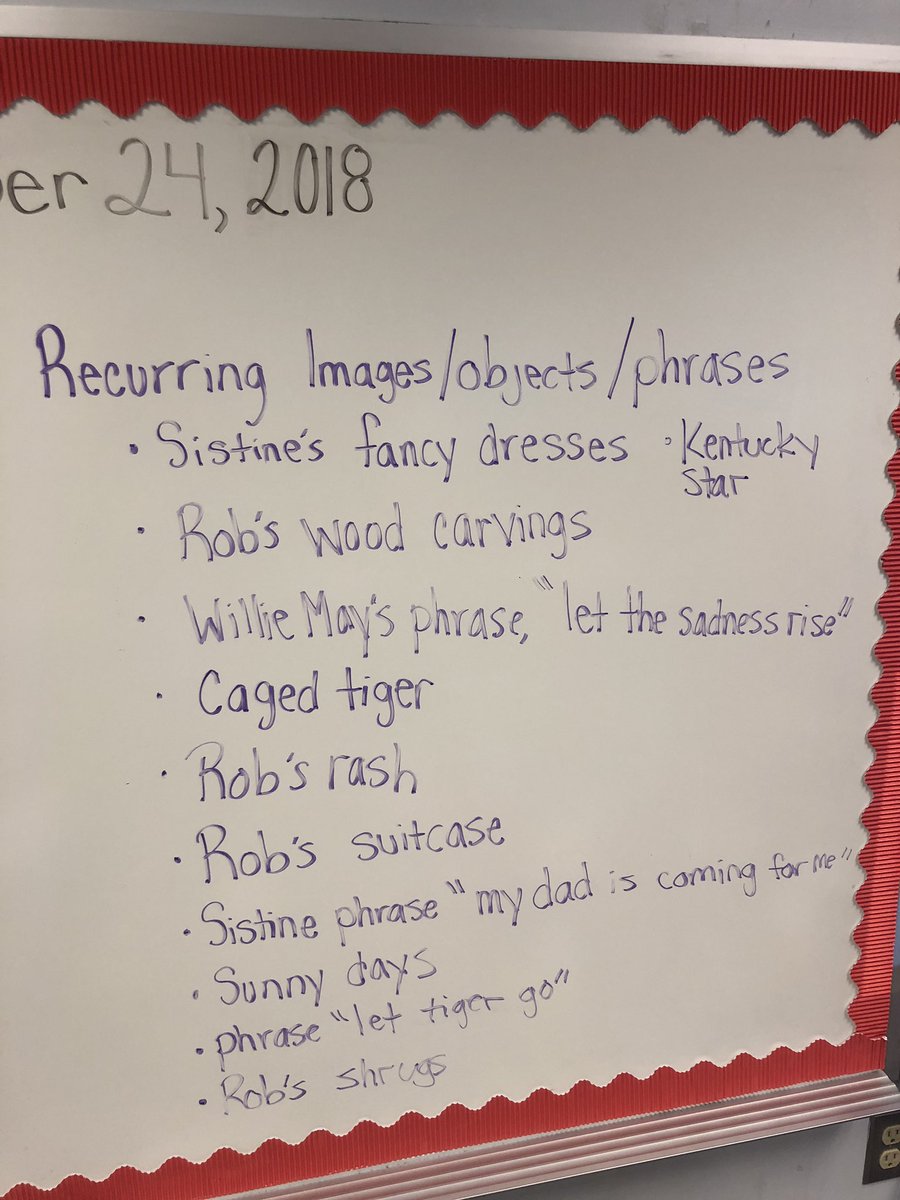 er 24, 2018
Recurring Images/objects/phrases
• Sistine's fancy dresses • Kentucky
Star
• Rob's wood carvings
• Willie May's phrase, "let the sadness rise"
• Caged tiger
• Rob's rash
• Rob's suitcase
• Sistine phrase "my dad is coming for me"
• Sunny days
• phrase "let tiger go"
• Rob's shrugs